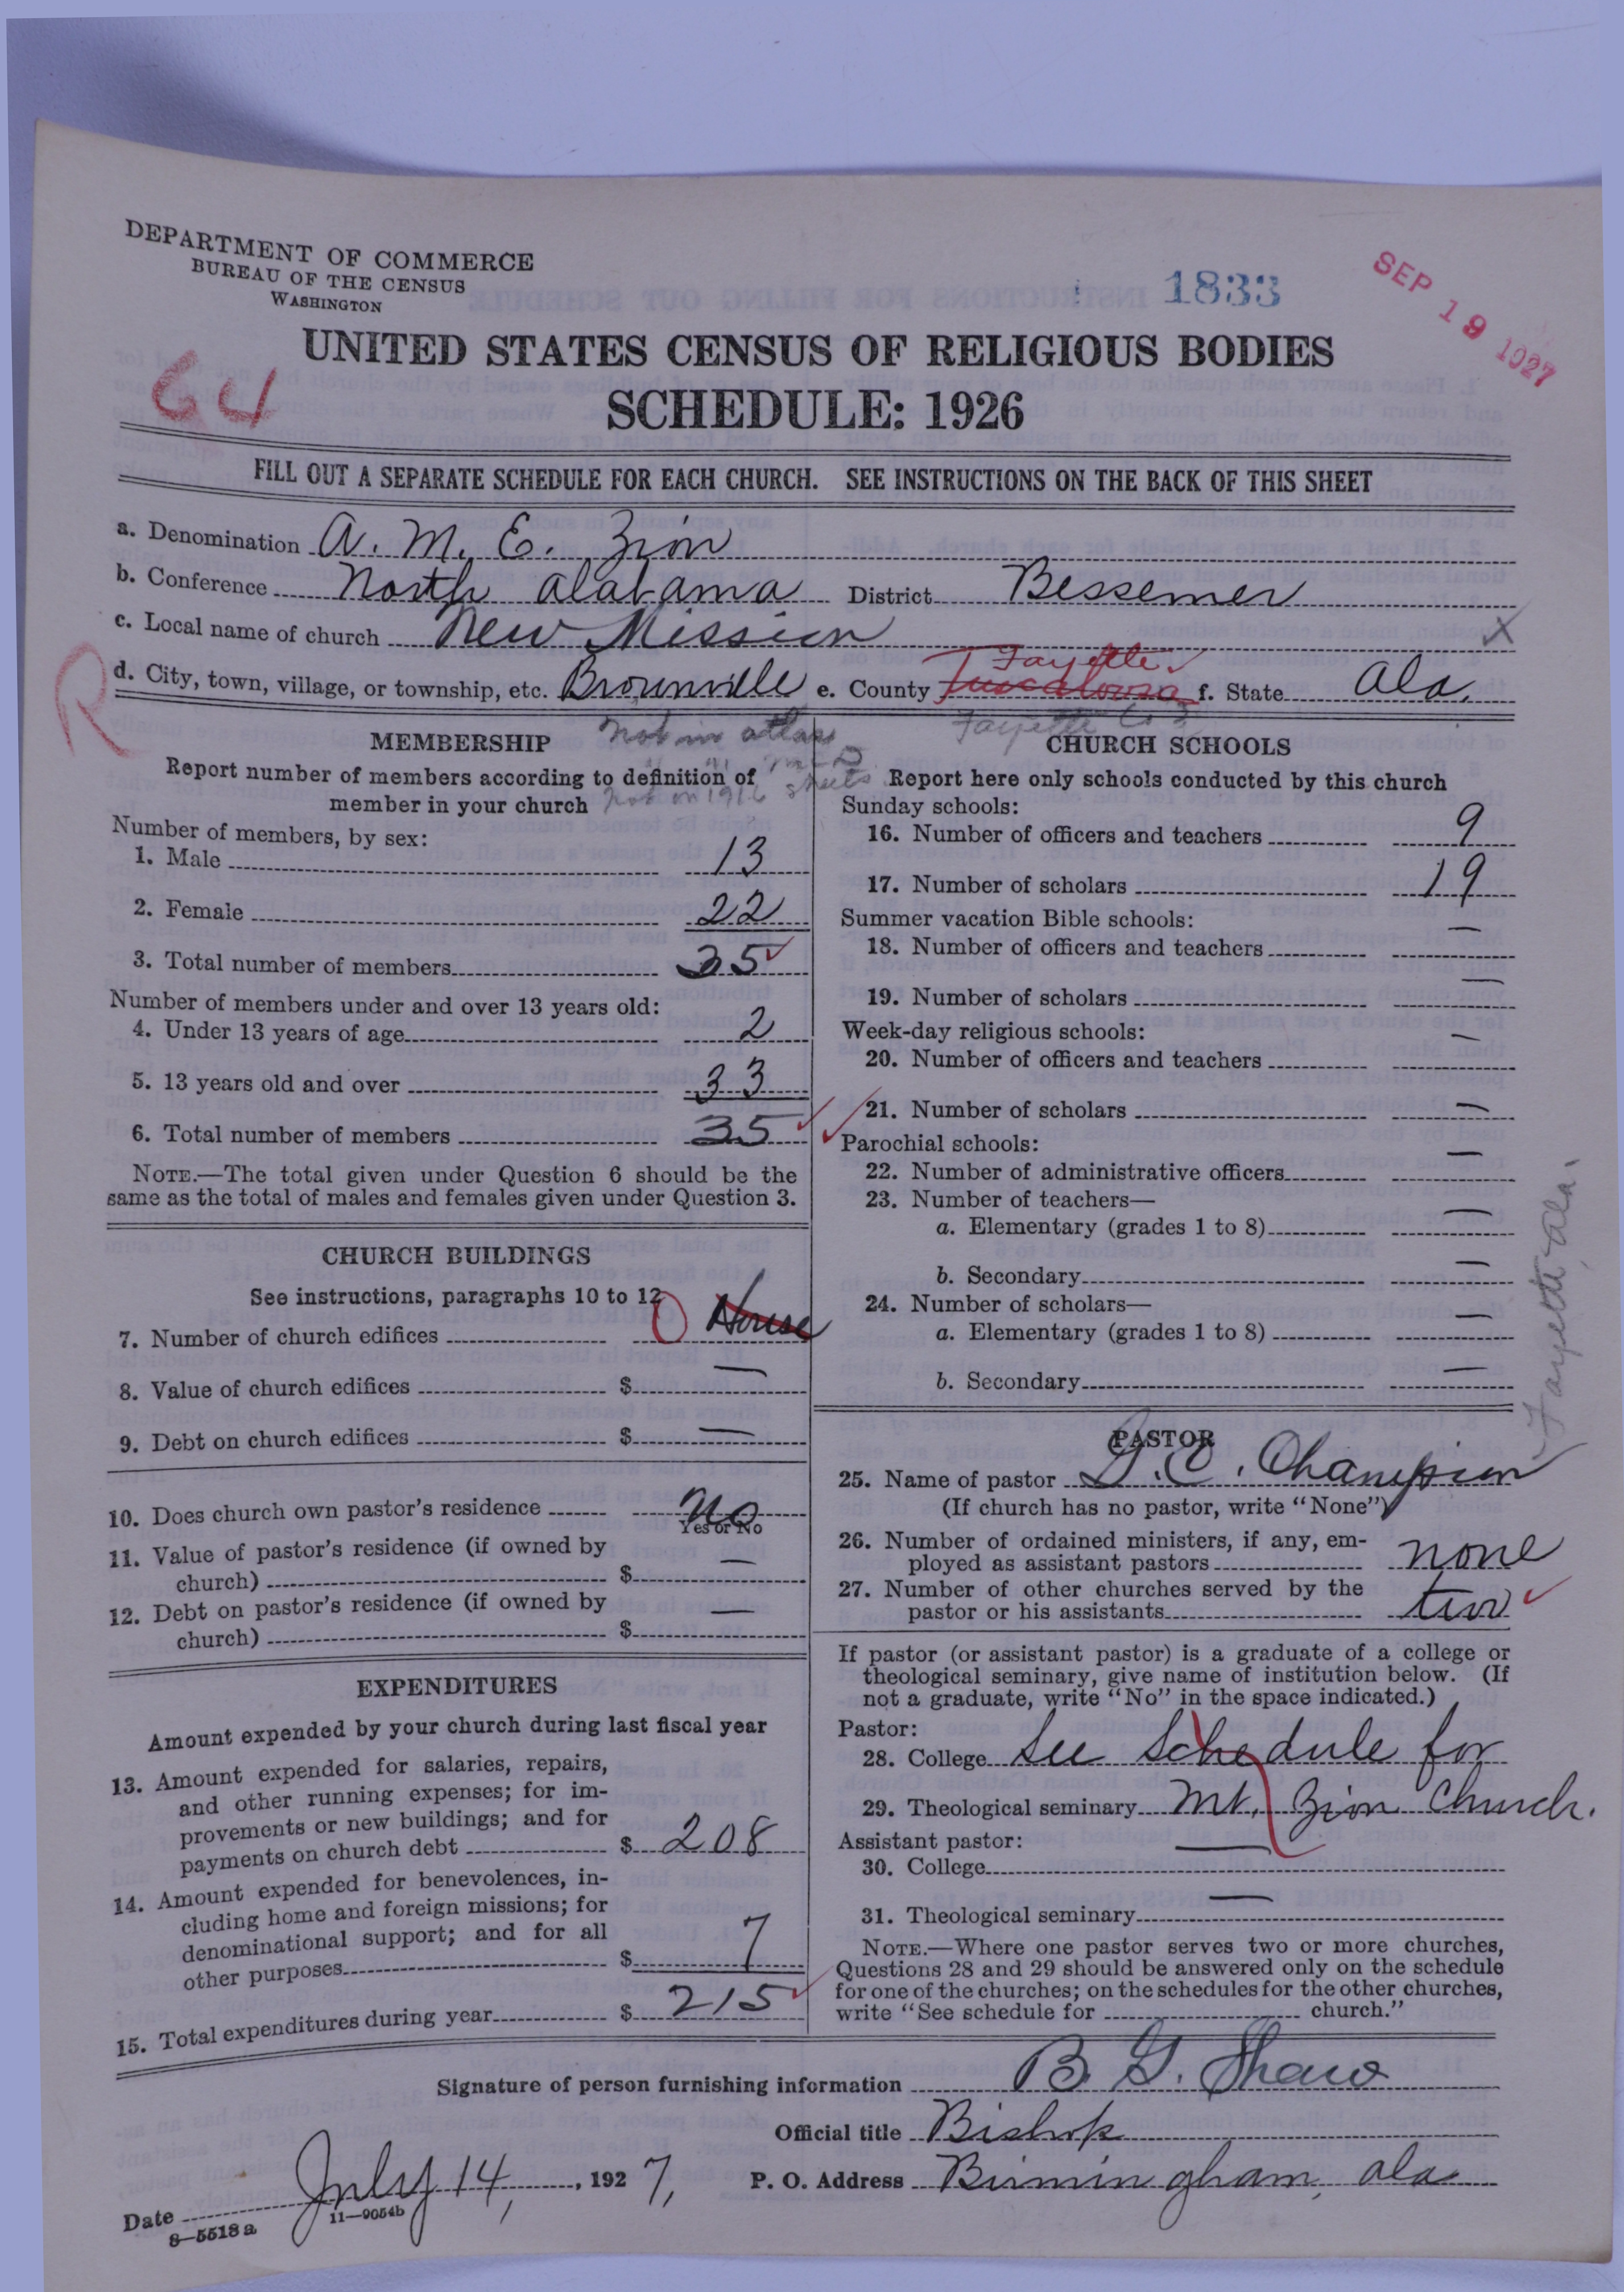 DEPARTMENT OF COMMERCE
BUREAU OF THE CENSUS
WASHINGTON
1833
SEP 19 1927
UNITED STATES CENSUS OF RELIGIOUS BODIES
GU
SCHEDULE: 1926
FILL OUT A SEPARATE SCHEDULE FOR EACH CHURCH. SEE INSTRUCTIONS ON THE BACK OF THIS SHEET
a. Denomination A. M. E. Zion
b. Conference North Alabama District Bessemer
c. Local name of church New Mission X
R
d. City, town, village, or township, etc. Brownville e. County Tuscaloosa Fayette f. State Ala.
Not in atlas
Fayette Co
MEMBERSHIP
Report number of members according to definition of
member in your church
Not on 1916 sheets
Number of members, by sex:
1. Male 13
2. Female 22
3. Total number of members 35
Number of members under and over 13 years old:
4. Under 13 years of age 2
5. 13 years old and over 33
6. Total number of members 35
NOTE.—The total given under Question 6 should be the
same as the total of males and females given under Question 3.
CHURCH BUILDINGS
See instructions, paragraphs 10 to 12
7. Number of church edifices 0 House
8. Value of church edifices $ —
9. Debt on church edifices $ —
10. Does church own pastor's residence No
Yes or No
11. Value of pastor's residence (if owned by
church) $ —
12. Debt on pastor's residence (if owned by
church) $ —
EXPENDITURES
Amount expended by your church during last fiscal year
13. Amount expended for salaries, repairs,
and other running expenses; for im-
provements or new buildings; and for
payments on church debt $ 208
14. Amount expended for benevolences, in-
cluding home and foreign missions; for
denominational support; and for all
other purposes $ 7
15. Total expenditures during year $ 215
CHURCH SCHOOLS
Report here only schools conducted by this church
Sunday schools:
16. Number of officers and teachers 9
17. Number of scholars 19
Summer vacation Bible schools:
18. Number of officers and teachers —
19. Number of scholars —
Week-day religious schools:
20. Number of officers and teachers —
21. Number of scholars —
Parochial schools:
22. Number of administrative officers —
23. Number of teachers—
a. Elementary (grades 1 to 8) —
b. Secondary —
24. Number of scholars—
a. Elementary (grades 1 to 8) —
b. Secondary —
Fayette Ala.
PASTOR
25. Name of pastor G. E. Champion
(If church has no pastor, write "None")
26. Number of ordained ministers, if any, em-
ployed as assistant pastors none
27. Number of other churches served by the
pastor or his assistants two
If pastor (or assistant pastor) is a graduate of a college or
theological seminary, give name of institution below. (If
not a graduate, write "No" in the space indicated.)
Pastor:
28. College See Schedule for
29. Theological seminary Mt. Zion Church.
Assistant pastor:
30. College —
31. Theological seminary —
NOTE.—Where one pastor serves two or more churches,
Questions 28 and 29 should be answered only on the schedule
for one of the churches; on the schedules for the other churches,
write "See schedule for ______ church."
Signature of person furnishing information B. G. Shaw
Official title Bishop
Date July 14, 1927, P. O. Address Birmingham, Ala
8—5518 a 11—9054b